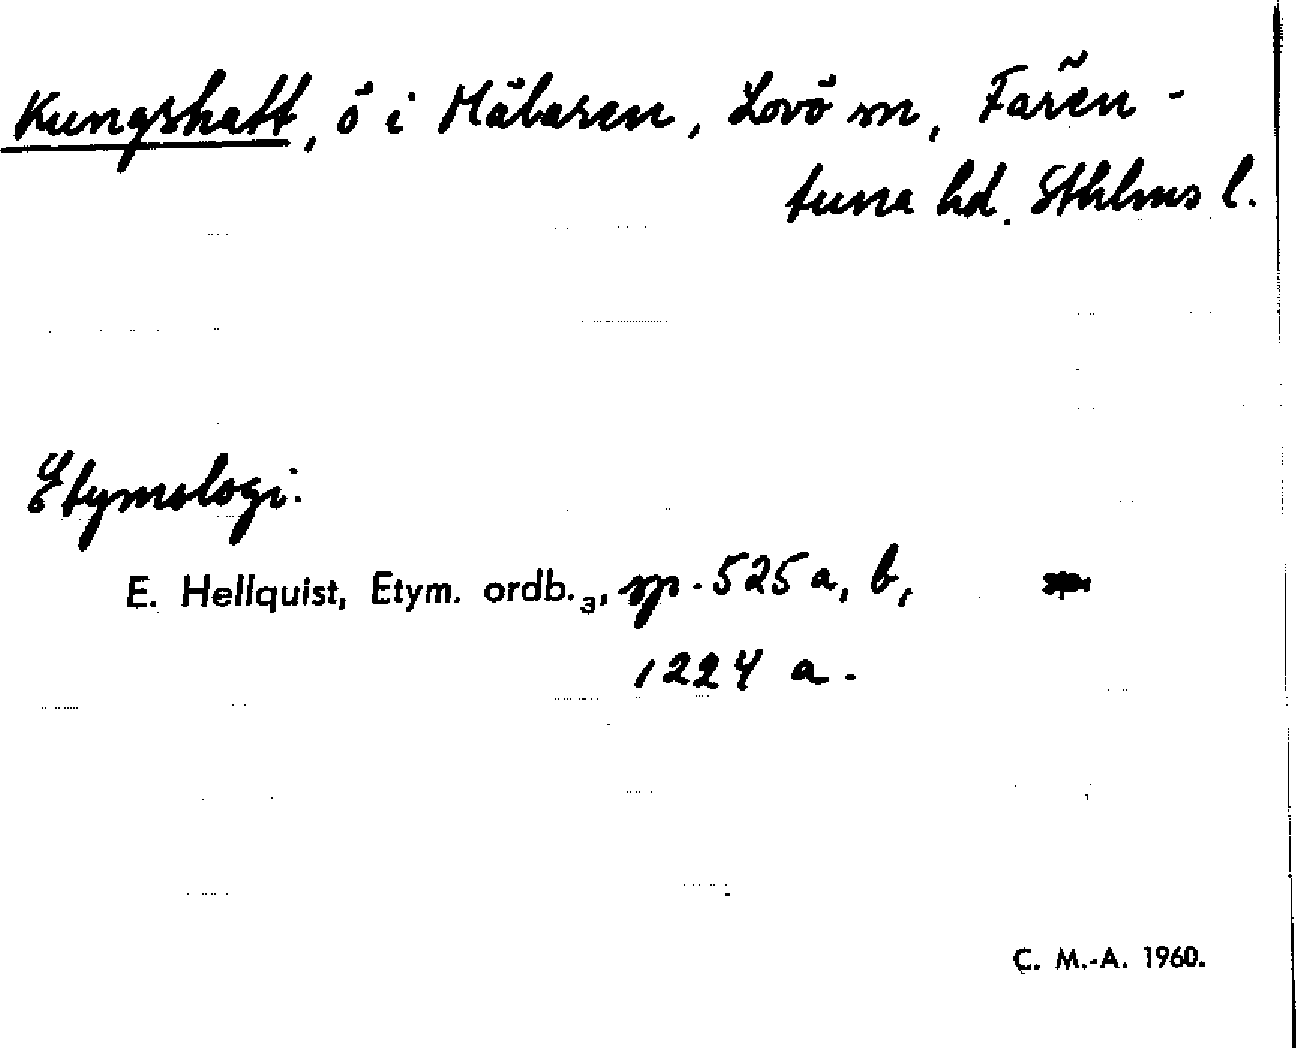 Kungshatt, ö i Mälaren, Lovö sn, Fären-
tuna hd. Sthlms l.
Etymologi.
E. Hellquist, Etym. ordb.₃, sp. 525 a, b,
1224 a.
C. M.-A. 1960.